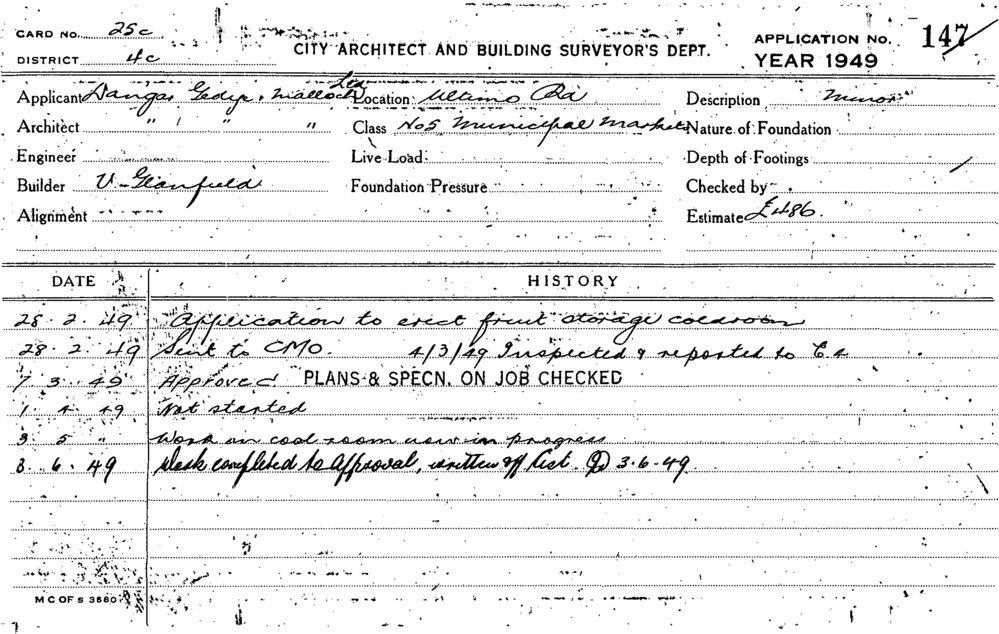 CARD NO. 25c
DISTRICT 4c
CITY ARCHITECT AND BUILDING SURVEYOR'S DEPT.
APPLICATION NO. 147
YEAR 1949
Applicant Dangar Gedye & Malloch Ltd
Location Ultimo Rd
Description Minor
Architect " " " "
Class No5 Municipal Markets
Nature of Foundation
Engineer
Live Load
Depth of Footings
Builder V. Glanfield
Foundation Pressure
Checked by
Alignment
Estimate £486.
DATE HISTORY
28.2.49 Application to erect fruit storage coolroom
28.2.49 Sent to CMO. 4/3/49 Inspected & reported to C.A.
7.3.49 Approved PLANS & SPECN. ON JOB CHECKED
1.4.49 Not started
3.5 " Work on cool room now in progress
3.6.49 Work completed to approval, written off list. 3.6.49
M C OF S 3560